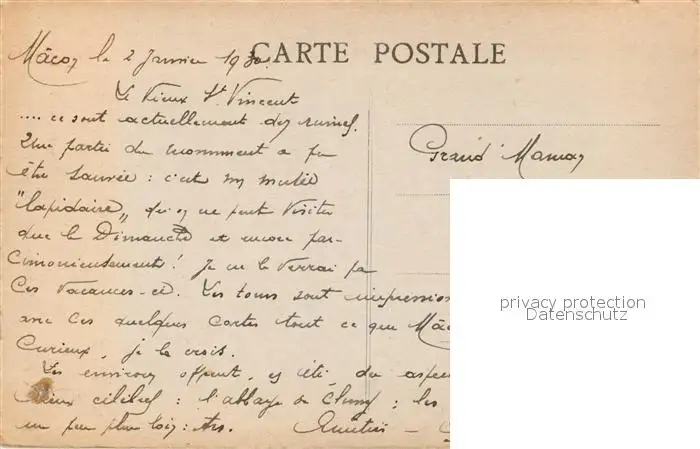 Mâcon le 2 Janvier 1930.
CARTE POSTALE
Le Vieux St. Vincent
.... ce sont actuellement des ruines.
Une partie du monument a pu
être sauvée : c'est un musée
"lapidaire" qu'on ne peut visiter
que le Dimanche et encore par-
cimonieusement ! Je ne le verrai pas
ces vacances-ci. Les tours sont impression
avec ces quelques cartes tout ce que Mâc
curieux, je le crois.
Les environs offrent, en été, du aspec
lieux célèbres : l'abbaye de Cluny ; les
un peu plus loin : Ars. Amitiés -
Grand' Maman
privacy protection
Datenschutz